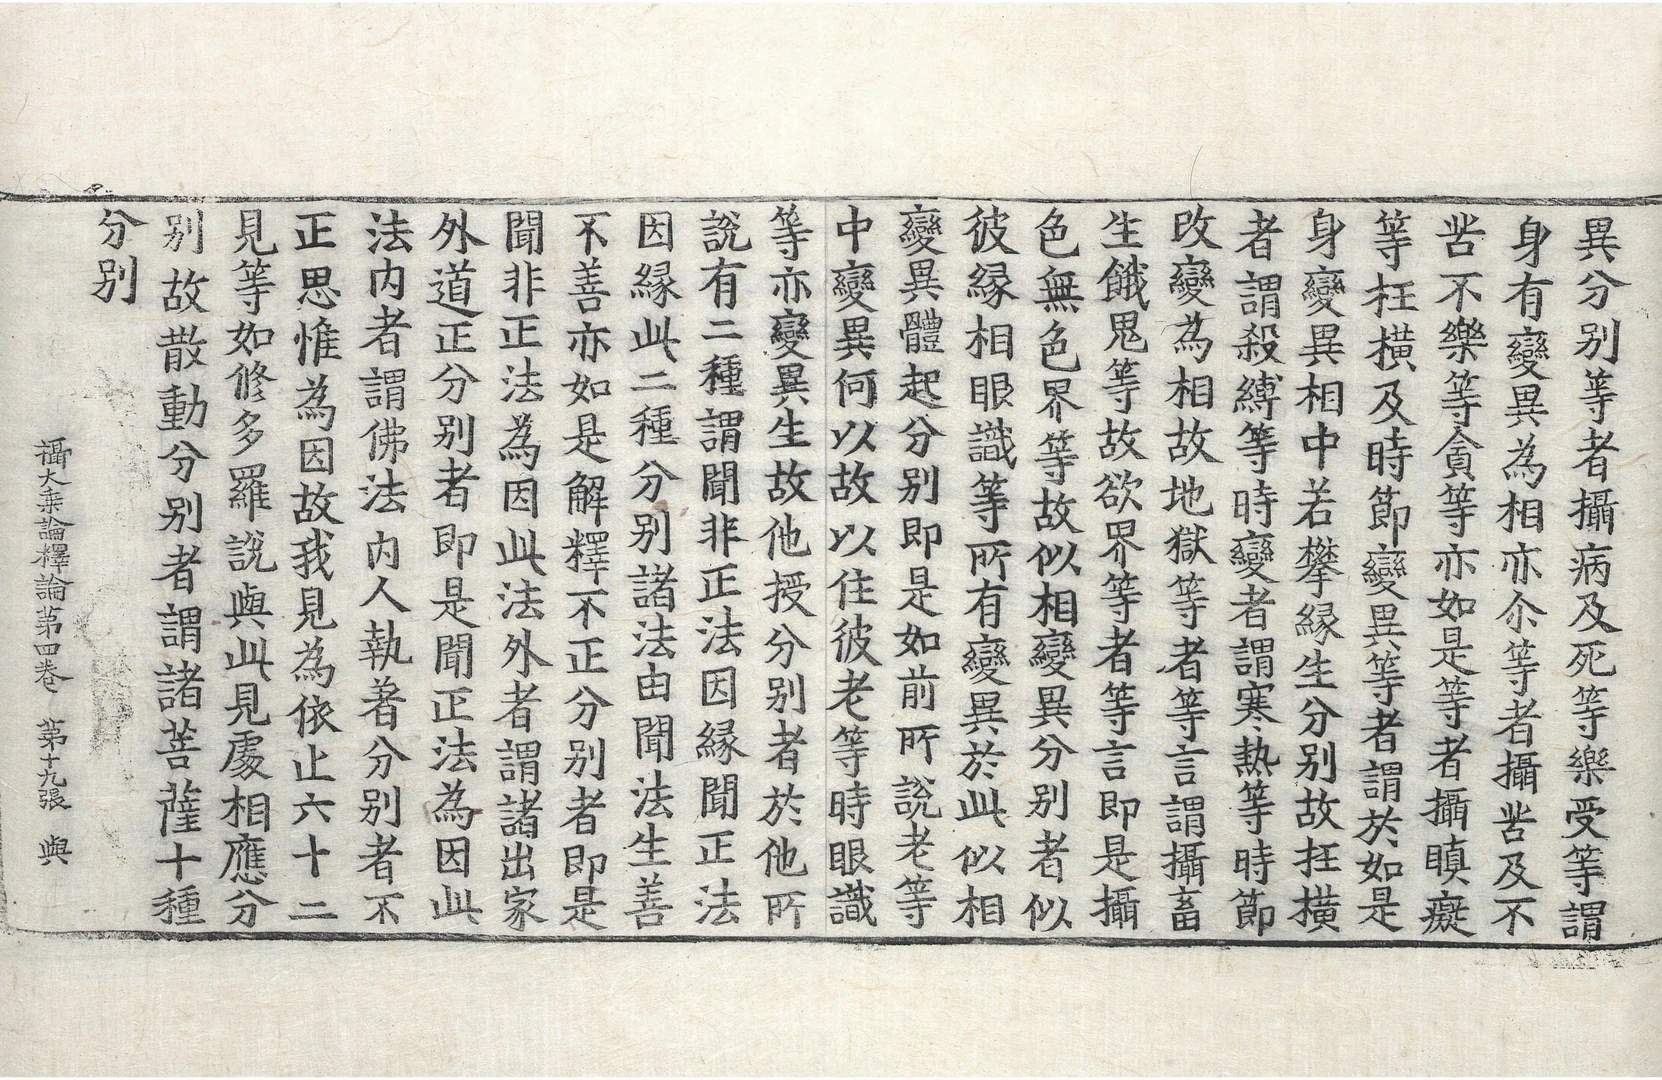 異分别等者攝病及死等樂受等謂
身有變異為相亦尒等者攝苦及不
苦不樂等貪等亦如是等者攝瞋癡
等枉橫及時節變異等者謂於如是
身變異相中若攀縁生分别故抂橫
者謂殺縛等時變者謂寒熱等時節
改變為相故地獄等者等言謂攝畜
生餓鬼等故欲界等者等言即是攝
色無色界等故似相變異分别者似
彼縁相眼識等所有變異於此似相
變異體起分别即是如前所說老等
中變異何以故以住彼老等時眼識
等亦變異生故他授分别者於他所
說有二種謂聞非正法因縁聞正法
因縁此二種分别諸法由聞法生善
不善亦如是解釋不正分别者即是
聞非正法為因此法外者謂諸出家
外道正分别者即是聞正法為因此
法内者謂佛法内人執著分别者不
正思惟為因故我見為依止六十二
見等如修多羅說與此見處相應分
别故散動分别者謂諸菩薩十種
分别
攝大乗論釋論第四卷 第十九張 與